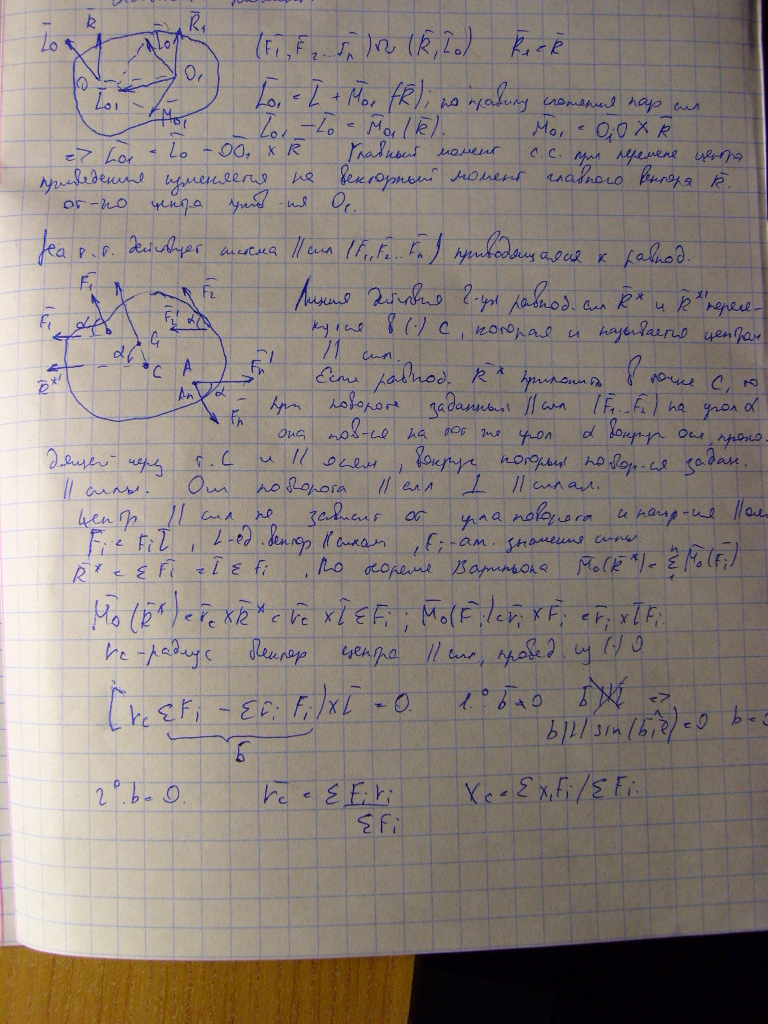 (F̄₁, F̄₂...F̄ₙ) ∾ (R̄, L̄₀) R̄₁ = R̄
L̄₀₁ = L̄ + M̄₀₁ (R̄); по правилу сложения пар сил
L̄₀₁ - L̄₀ = M̄₀₁ (R̄). M̄₀₁ = O̅₁O̅ × R̄
=> L̄₀₁ = L̄₀ - O̅O̅₁ × R̄ Главный момент с.с. при перемене центра
приведения изменяется на векторный момент главного вектора R̄.
от-но центра O₁.
L̄₀ R̄ L̄₀ R̄₁
O O₁
L̄₀₁ M̄₀₁
На т.т. действует система // сил (F̄₁, F̄₂...F̄ₙ) приводящаяся к равнод.
F̄₁ F̄₂
F̄₁' α F̄₂' α
α C₁ A F̄ₙ'
R̄*' C Aₙ α
F̄ₙ
Линия действия 2-ух равнод. сил R̄* и R̄*' пересе-
кутся в (·) C, которая и называется центром
// сил.
Если равнод. R̄* приложить в точке C, то
при повороте заданных // сил на угол α
она пов-ся на тот же угол α вокруг оси, прохо-
дящей через т. C и // осям, вокруг которых повор-ся задан.
// силы. Оси поворота // сил ⊥ // силам.
Центр // сил не зависит от угла поворота и
F̄ᵢ = Fᵢ l̄, l-ед. вектор // силам, Fᵢ-ал. значения силы.
R̄* = Σ F̄ᵢ = l̄ Σ Fᵢ, По теореме Вариньона M̄₀(R̄*) = Σ M̄₀(F̄ᵢ)
M̄₀(R̄*) = r̄c × R̄* = r̄c × l̄ ΣFᵢ; M̄₀(F̄ᵢ) = r̄ᵢ × F̄ᵢ = r̄ᵢ × l̄Fᵢ
rc - радиус вектор центра // сил, провед. из (·) O
[r̄c ΣFᵢ - Σr̄ᵢ Fᵢ) × l̄ = 0. 1.° b̄ ≠ 0 =>
b̄ b|l| sin(b̄,l̄) = 0
2°. b = 0. r̄c = ΣFᵢrᵢ / ΣFᵢ Xc = Σ xᵢFᵢ / ΣFᵢ.